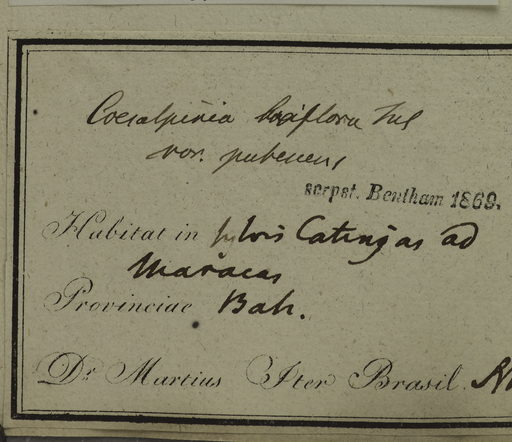 Coesalpinia laxiflora Tul
var. pubescens
scrpst. Bentham 1869.
Habitat in sylvis Catingas ad
Maracas
Provinciae Bah.
Dr. Martius Iter Brasil.